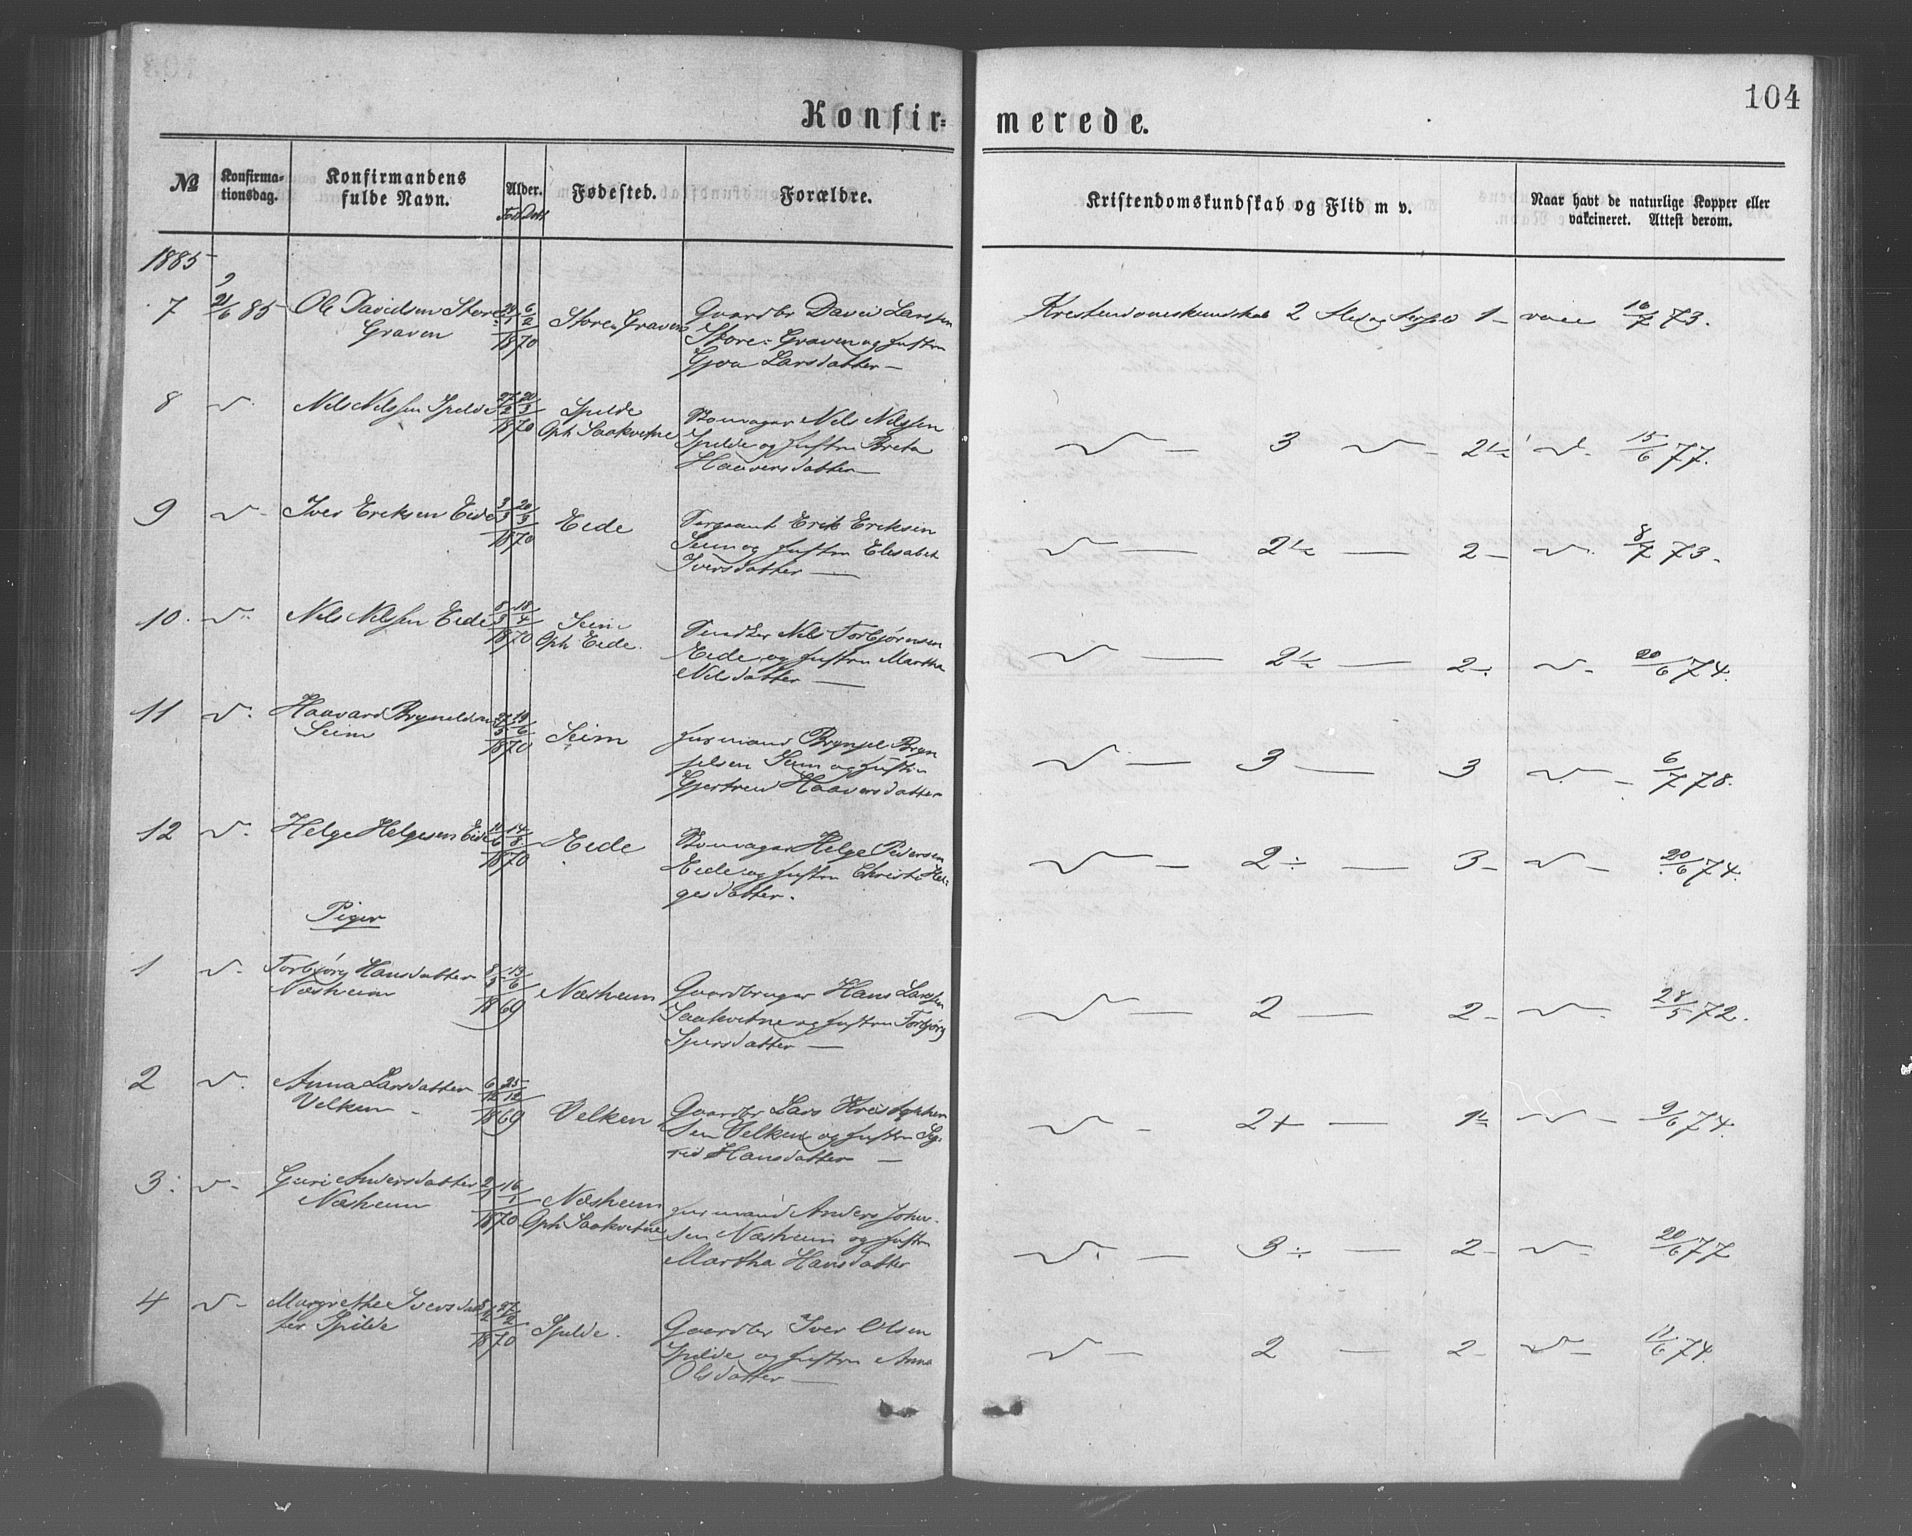 104
Konfir= merede.
№
Konfirma-
tionsdag.
Konfirmandens
fulde Navn.
Alder.
Fødested.
Forældre.
Kristendomskundskab og Flid m v.
Naar havt de naturlige Kopper eller
vakcineret. Attest derom.
1885
7 21/6 85 Ole Davidsen Store
Graven
1870
Store Graven
Gaardbr David Larssen
Store= Graven og hustru
Gjoa Larsdatter —
2 1 — 73.
8 Nels Nelssen Spilde
1870
Spilde
Oph Saakvitne
Nels Nelssen
Spilde og hustru Breta
Haaversdatter —
3 2½ 15/6 77.
9 Iver Eriksen Eide
3/3 20/3
1870
Eide
Sergeant Erik Eriksen
Seim og hustru Elisabet
Iversdatter —
2½ — 2 — 8/7 73.
10. Nels Nelssen Eide
8/3 18/4
1870
Seim
Oph Eide.
Nels Torbjørnsen
Eide og hustru Martha
Nelsdatter —
2½ — 2 20/6 74.
11 Haavard Bryneldsen
Seim
1870
Seim
Husmand Brynjel Bryn
jelsen Seim og hustru
Gjertrud Haaversdatter
3 — 3 6/7 78.
12 Helge Helgesen Eide
14/8
1870
Eide
Helge Pedersen
Eide og hustru Christi Hel-
gesdatter.
2 ÷ — 3 — 20/6 74.
Piger
1 Torbjørg Hansdatter
Næsheim
8/5 13/6
1869
Næsheim
Gaardbruger Hans Larssen
Saakvitne og hustru Torbjørg
Sjursdatter —
2 — 2 — 28/5 72.
2 Anna Larsdatter
Velken
6/12 25/12
1869
Velken
Gaardbr Lars Kristopher
sen Velken og hustru Sig
rid Hansdatter —
2+ — 1½ 9/6 74.
3 Guri Andersdatter
Næsheim
2/1 16/1
1870
Næsheim
Oph Saakvitne
Husmand Anders Johan-
sen Næsheim og hustru
Martha Hansdatter
3 ÷ — 2 — 20/6 77
4 Margrethe Iversdat
ter Spilde
27/2
1870
Spilde.
Gaardbr Iver Olsen
Spilde og hustru Anna
Olsdatter —
2 — 2 — 11/6 74.